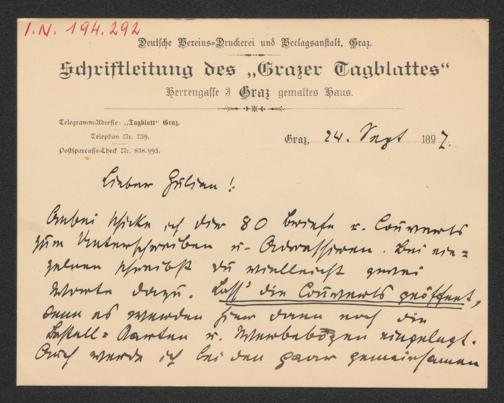 I.N. 194.292
Deutsche Vereins-Druckerei und Verlagsanstalt, Graz.
Schriftleitung des „Grazer Tagblattes“
Herrengasse 3 Graz gemaltes Haus.
Telegramm-Adresse: „Tagblatt“ Graz.
Telephon Nr. 739.
Postsparcasse-Check Nr. 838.993.
Graz, 24. Sept 1897.
Lieber Julius!
Anbei schicke ich dir 80 Briefe u. Couverts
zum Unterschreiben u. Adressiren. Bei ein-
zelnen schreibst du vielleicht zwei
Worte dazu. Lass' die Couverts geöffnet,
denn es werden hier dann noch die
Bestell-Karten u. Werbebögen eingelegt.
Auch werde ich bei den paar gemeinsamen